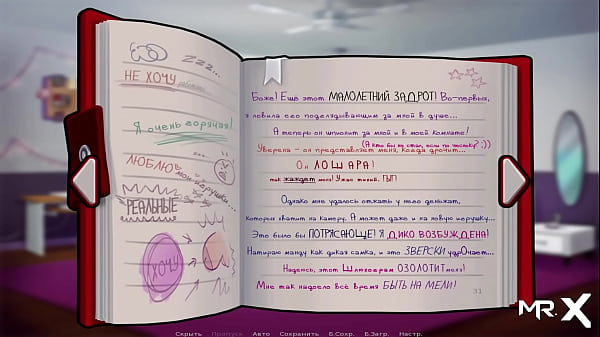 zzz...
НЕ ХОЧУ
Я очень горячая!
ЛЮБЛЮ мои игрушки...
РЕАЛЬНЫЕ
ХОЧУ
Боже! Ещё этот МАЛОЛЕТНИЙ ЗАДРОТ! Во-первых,
я ловила его подглядывающим за мной в душе...
А теперь он шпионит за мной и в моей комнате!
(А кто бы не стал, если по чесноку? :))
Уверена - он представляет меня, когда дрочит...
Он ЛОШАРА!
так жаждет меня! Ужас тихий.
Однако мне удалось отжать у него деньжат,
которых хватит на камеру. А может даже и на новую игрушку...
Это было бы ПОТРЯСАЮЩЕ! Я ДИКО ВОЗБУЖДЕНА!
Натираю манду как дикая самка, и это ЗВЕРСКИ удрОчает...
Надеюсь, этот Шлюхограм ОЗОЛОТИТ меня!
Мне так надоело всё время БЫТЬ НА МЕЛИ!
31
Скрыть Пропуск Авто Сохранить Б.Сохр. Б.Загр. Настр.
MR.X